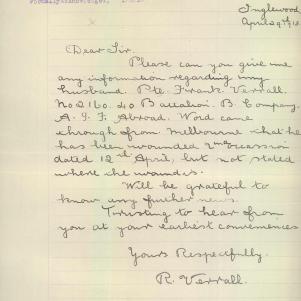 Inglewood
April 29th, 18.
Dear Sir.
Please can you give me
any information regarding my
husband. Pte. Frank. Verrall.
No 2160. 40 Battalion. B. Company.
A. I. F. Abroad. Word came
through from Melbourne that he
has been wounded 2nd occassion
dated 12th April, but not stated
where the wound is.
Will be grateful to
know any further news.
Trusting to hear from
you at your earliest convenience
Yours Respectfully.
R. Verrall.